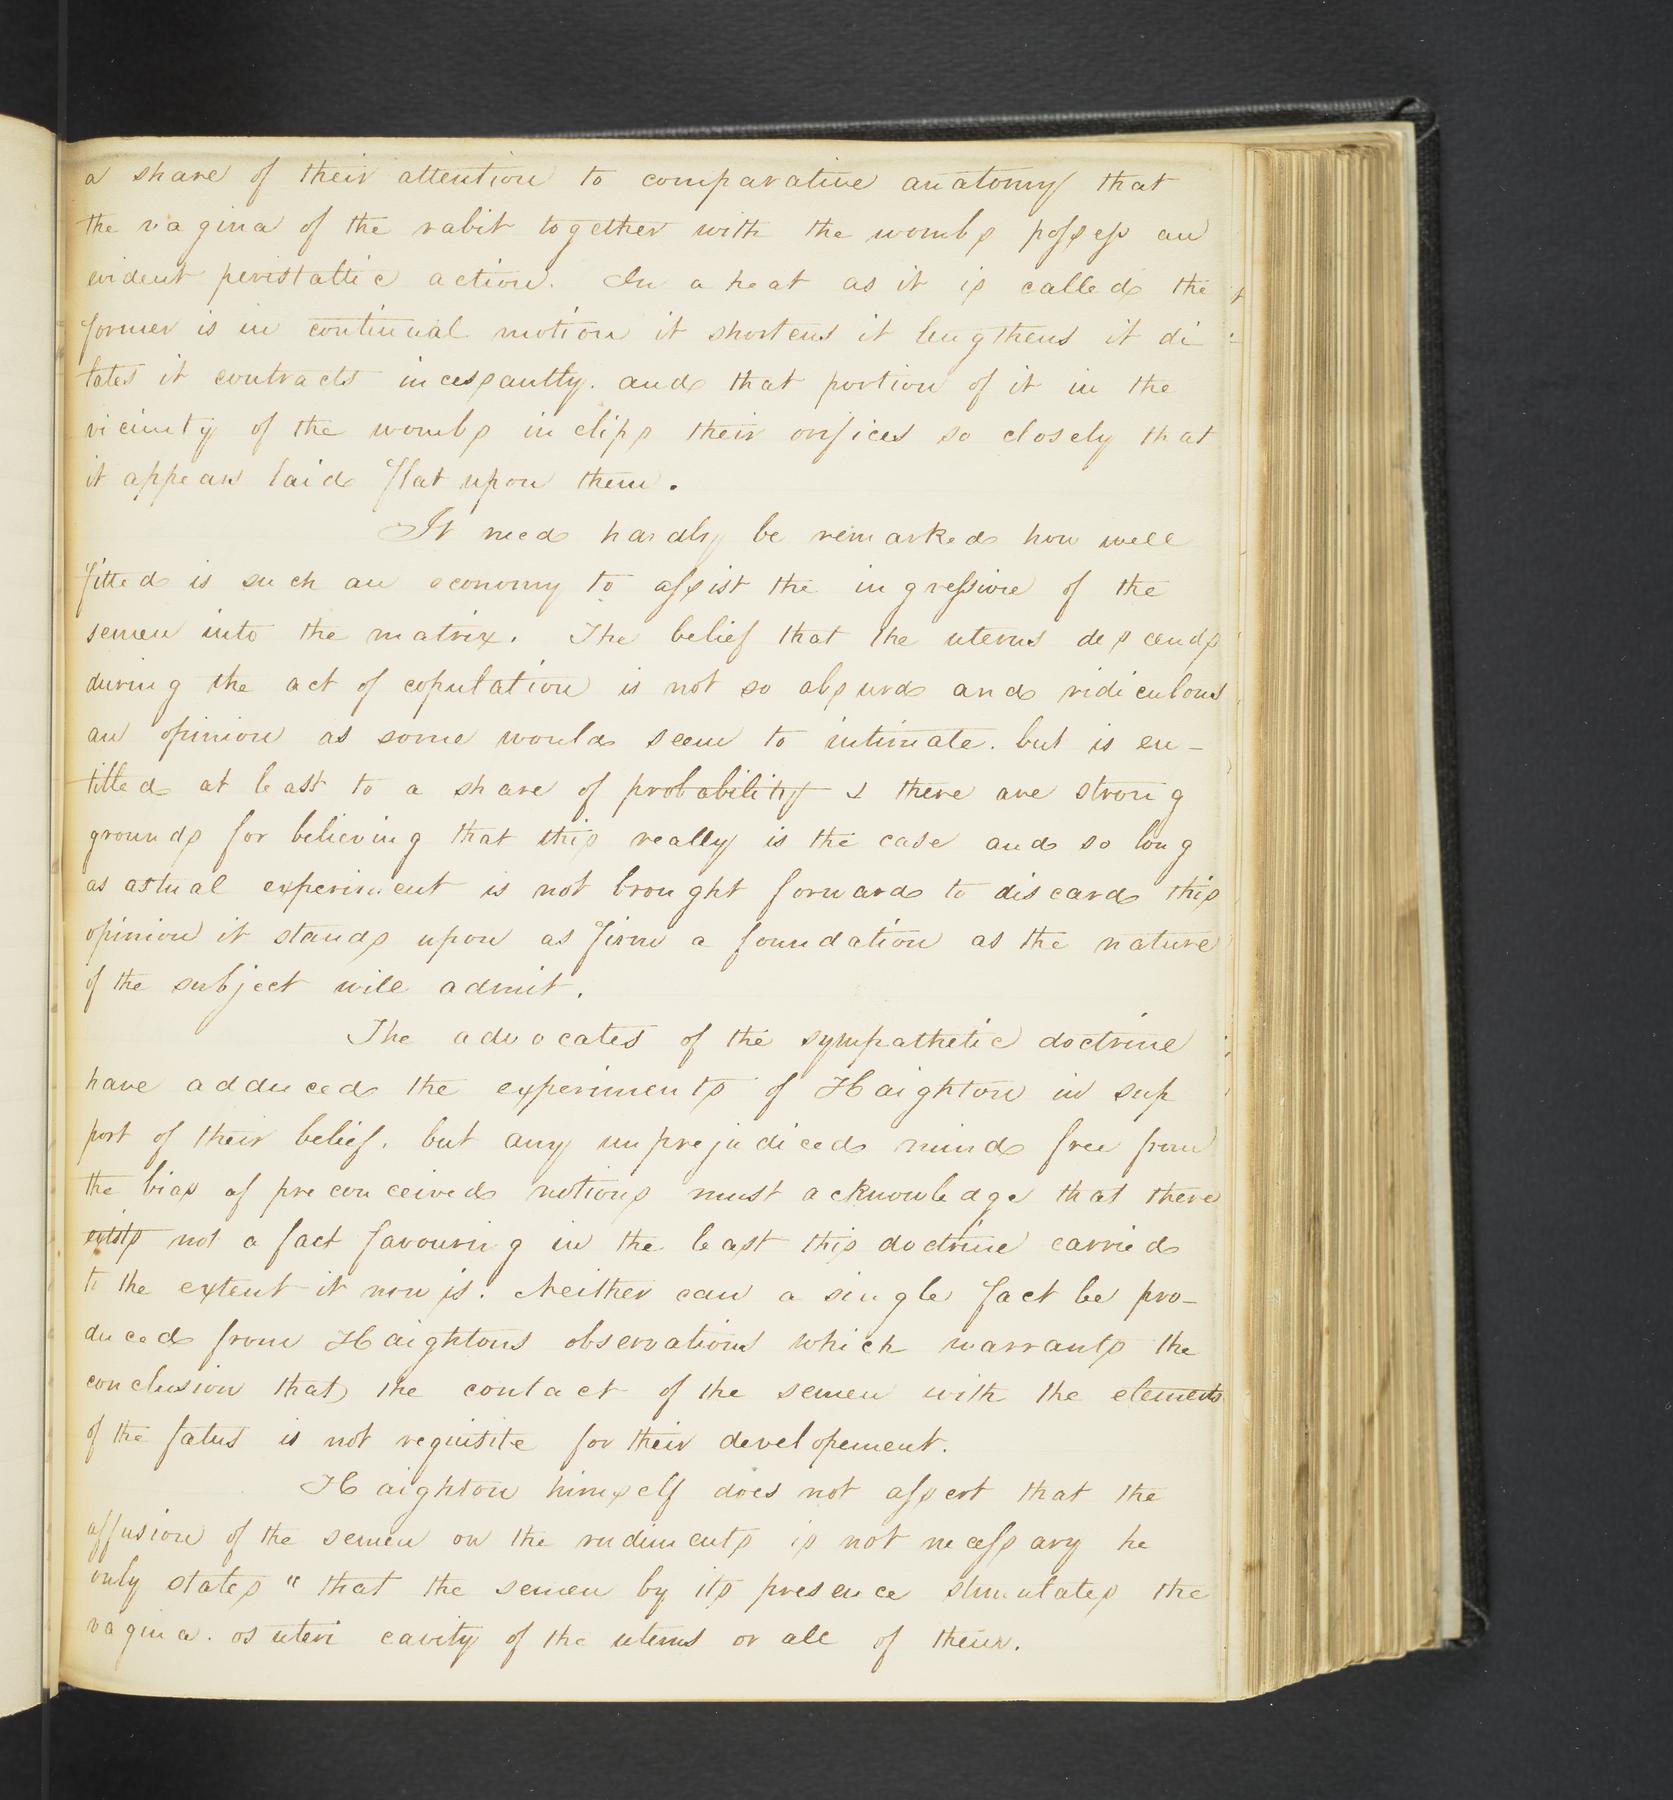 a share of their attention to comparative anatomy that
the vagina of the rabit together with the wombs possess an
evident peristaltic action. In a heat as it is called the
former is in continual motion it shortens it lengthens it di
lates it contracts incessantly. and that portion of it in the
vicinity of the wombs inclips their orifices so closely that
it appears laid flat upon them.
It need hardly be remarked how well
fitted is such an economy to assist the ingression of the
semen into the matrix. The belief that the uterus descends
during the act of copulation is not so absurd and ridiculous
an opinion as some would seem to intimate. but is en-
titled at least to a share of probability & there are strong
grounds for believing that this really is the case and so long
as actual experiment is not brought forward to discard this
opinion it stands upon as firm a foundation as the nature
of the subject will admit.
The advocates of the sympathetic doctrine
have adduced the experiments of Haighton in sup
port of their belief. but any unprejudiced mind free from
the bias of preconceived notions must acknowledge that there
exists not a fact favouring in the least this doctrine carried
to the extent it now is. Neither can a single fact be pro-
duced from Haightons observations which warrants the
conclusion that the contact of the semen with the elements
of the fœtus is not requisite for their developement.
Haighton himself does not assert that the
affusion of the semen on the rudiments is not necessary he
only states "that the semen by its presence stimulates the
vagina. os uteri cavity of the uterus or all of them.